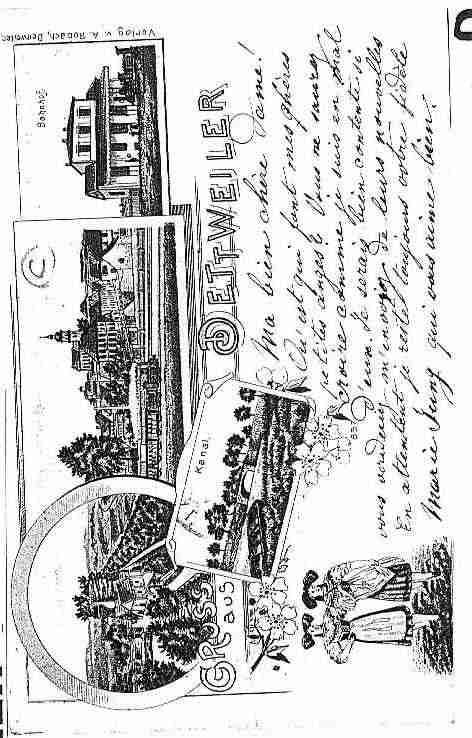 Verlag v. A. Robach,
Bahnhof
Kanal
GRUSS
aus
DETTWEILER
Ma bien chère Dame!
Qu'est qui font mes chères
petites anges? Vous ne saurez
croire comme je suis en mal
d'eux. Je serais bien contente si
vous voudrez m'envoyer de leurs nouvelles
En attentent je reste toujours votre fidèle
Marie Jung qui vous aime bien.
©